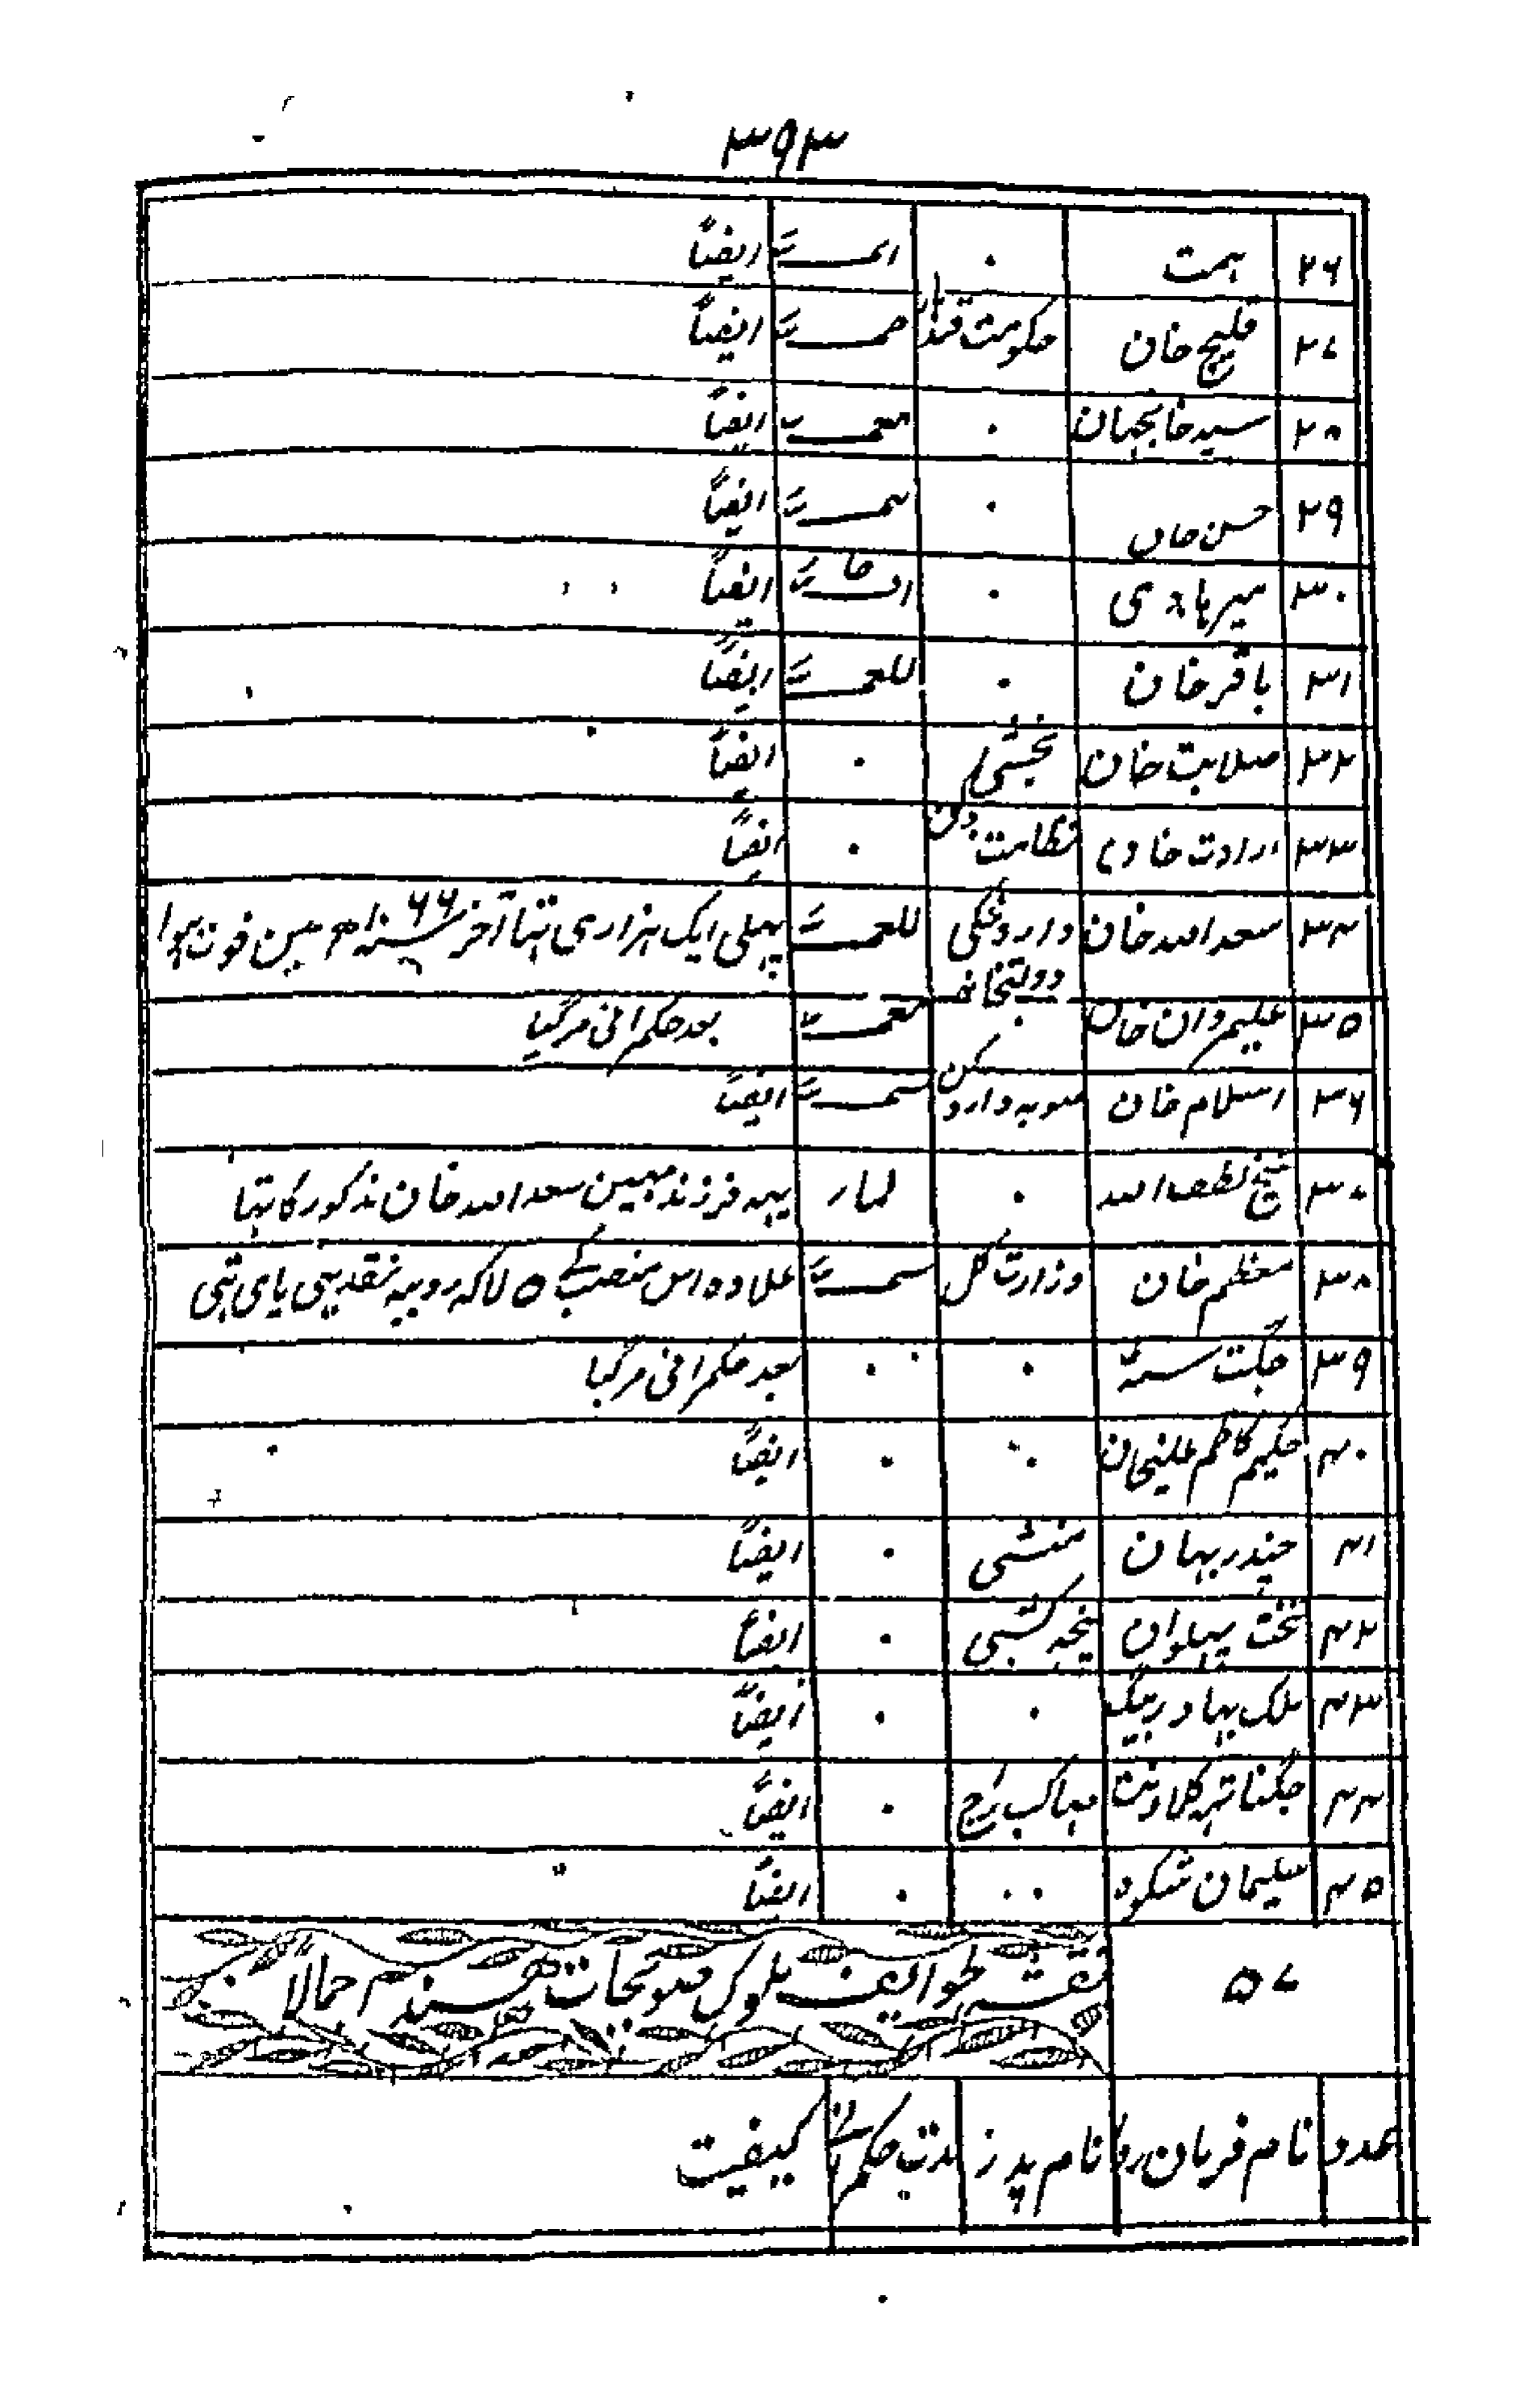 ۳۹۳
۲۶ ہمت ۰ ایضاً
۲۷ قلیچ خان حکومت قندہار ایضاً
۲۸ سید خانجہان ۰ ایضاً
۲۹ حسن خان ۰ ایضاً
۳۰ میر ہادی ۰ ایضاً
۳۱ باقر خان ۰ ایضاً
۳۲ صلابت خان بخشی ۰ ایضاً
۳۳ ارادت خان نظامت دکن ۰ ایضاً
۳۴ سعد اللہ خان داروغگی دولتخانہ پہلی ایک ہزاری تہا آخر سنہ ۱۰۶۶ھ مین فوت ہوا
۳۵ علیمردان خان ۰ بعد حکمرانی مرگیا
۳۶ اسلام خان صوبہ دار دکن ایضاً
۳۷ شیخ لطف اللہ ۰ یہہ فرزند مہین سعد اللہ خان مذکور کا تہا
۳۸ معظم خان وزارت کل علاوہ اس منصب کے ۵ لاکہ روپیہ نقد بہی پای تہی
۳۹ جگت سنگہ ۰ ۰ بعد حکمرانی مرگیا
۴۰ حکیم کاظم علیخان ۰ ۰ ایضاً
۴۱ چندر بہان منشی ۰ ایضاً
۴۲ تخت پہلوان پنجہ کشی ۰ ایضاً
۴۳ ملک بہادر بیگ ۰ ۰ ایضاً
۴۴ جگناتہہ کلاونت مہاکب راج ۰ ایضاً
۴۵ سلیمان شکوہ ۰ ۰ ایضاً
۵۷ نقشہ طوایف ملوک صوبجات ہند اجمالاً
عدد نام فرمان روا نام پدر مدت حکمرانی کیفیت